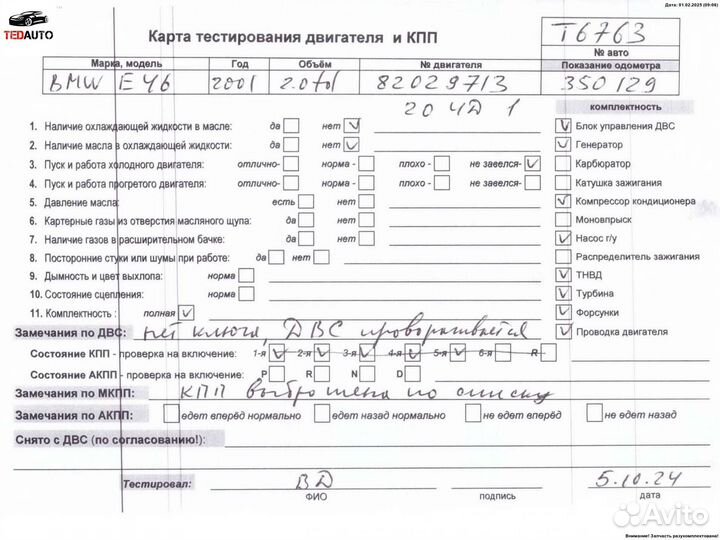 Дата: 01.02.2025 (09:06)
TEDAUTO
Карта тестирования двигателя и КПП
T6763
№ авто
Марка, модель Год Объём № двигателя Показание одометра
BMW E46 2001 2.0td 82029713 350129
204D1
комплектность
1. Наличие охлаждающей жидкости в масле: да нет V
V Блок управления ДВС
2. Наличие масла в охлаждающей жидкости: да нет V
V Генератор
3. Пуск и работа холодного двигателя: отлично- норма - плохо - не завелся- V
Карбюратор
4. Пуск и работа прогретого двигателя: отлично- норма - плохо - не завелся-
Катушка зажигания
5. Давление масла: есть нет
V Компрессор кондиционера
6. Картерные газы из отверстия масляного щупа: да нет
Моновпрыск
7. Наличие газов в расширительном бачке: да нет
V Насос г/у
8. Посторонние стуки или шумы при работе: да нет
Распределитель зажигания
9. Дымность и цвет выхлопа: норма
V ТНВД
10. Состояние сцепления: норма
V Турбина
11. Комплектность : полная V
V Форсунки
Замечания по ДВС: нет ключа, ДВС проворачивается
V Проводка двигателя
Состояние КПП - проверка на включение: 1-я V 2-я V 3-я V 4-я V 5-я V 6-я R
Состояние АКПП - проверка на включение: P R N D
Замечания по МКПП: КПП выброшена по списку
Замечания по АКПП: едет вперёд нормально едет назад нормально не едет вперёд не едет назад
Снято с ДВС (по согласованию!):
Тестировал: ВД 5.10.24
ФИО подпись дата
Avito
Внимание! Запчасть разукомплектована!